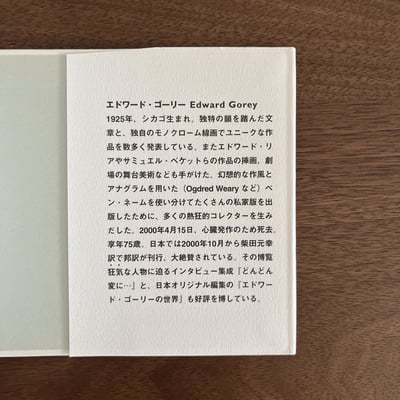 エドワード・ゴーリー Edward Gorey
1925年、シカゴ生まれ。独特の韻を踏んだ文
章と、独自のモノクローム線画でユニークな作
品を数多く発表している。またエドワード・リ
アやサミュエル・ベケットらの作品の挿画、劇
場の舞台美術なども手がけた。幻想的な作風と
アナグラムを用いた（Ogdred Weary など）ペ
ン・ネームを使い分けてたくさんの私家版を出
版したために、多くの熱狂的コレクターを生み
だした。2000年4月15日、心臓発作のため死去。
享年75歳。日本では2000年10月から柴田元幸
訳で邦訳が刊行、大絶賛されている。その博覧
狂気な人物に迫るインタビュー集成『どんどん
変に…』と、日本オリジナル編集の『エドワー
ド・ゴーリーの世界』も好評を博している。